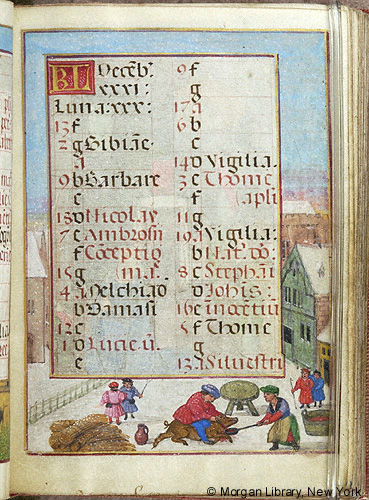 KL Decēb'.
xxxi:
Luna: xxx:
13 f
2 g Bibiāe.
A
9 b Barbare
c
18 d Nicolae
7 e Ambrosii
f Cōceptio
15 g ma.
4 A Melchiad
b Damasi
12 c
1 d Lucie. v.
e
9 f
g
17 A
6 b
c
14 d Vigilia.
3 e Thome
f apli
11 g
19 A Vigilia:
b Nat. dō:
8 c Stephāi
d Johīs:
16 e īnocētiū
5 f Thome
g
13 A Silvestri
© Morgan Library, New York